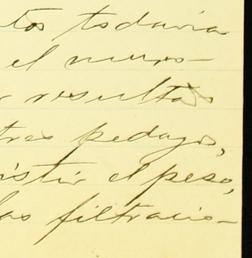 tos todavia
el muro-
r resultas
tres pedazos,
istir el peso,
las filtracio-